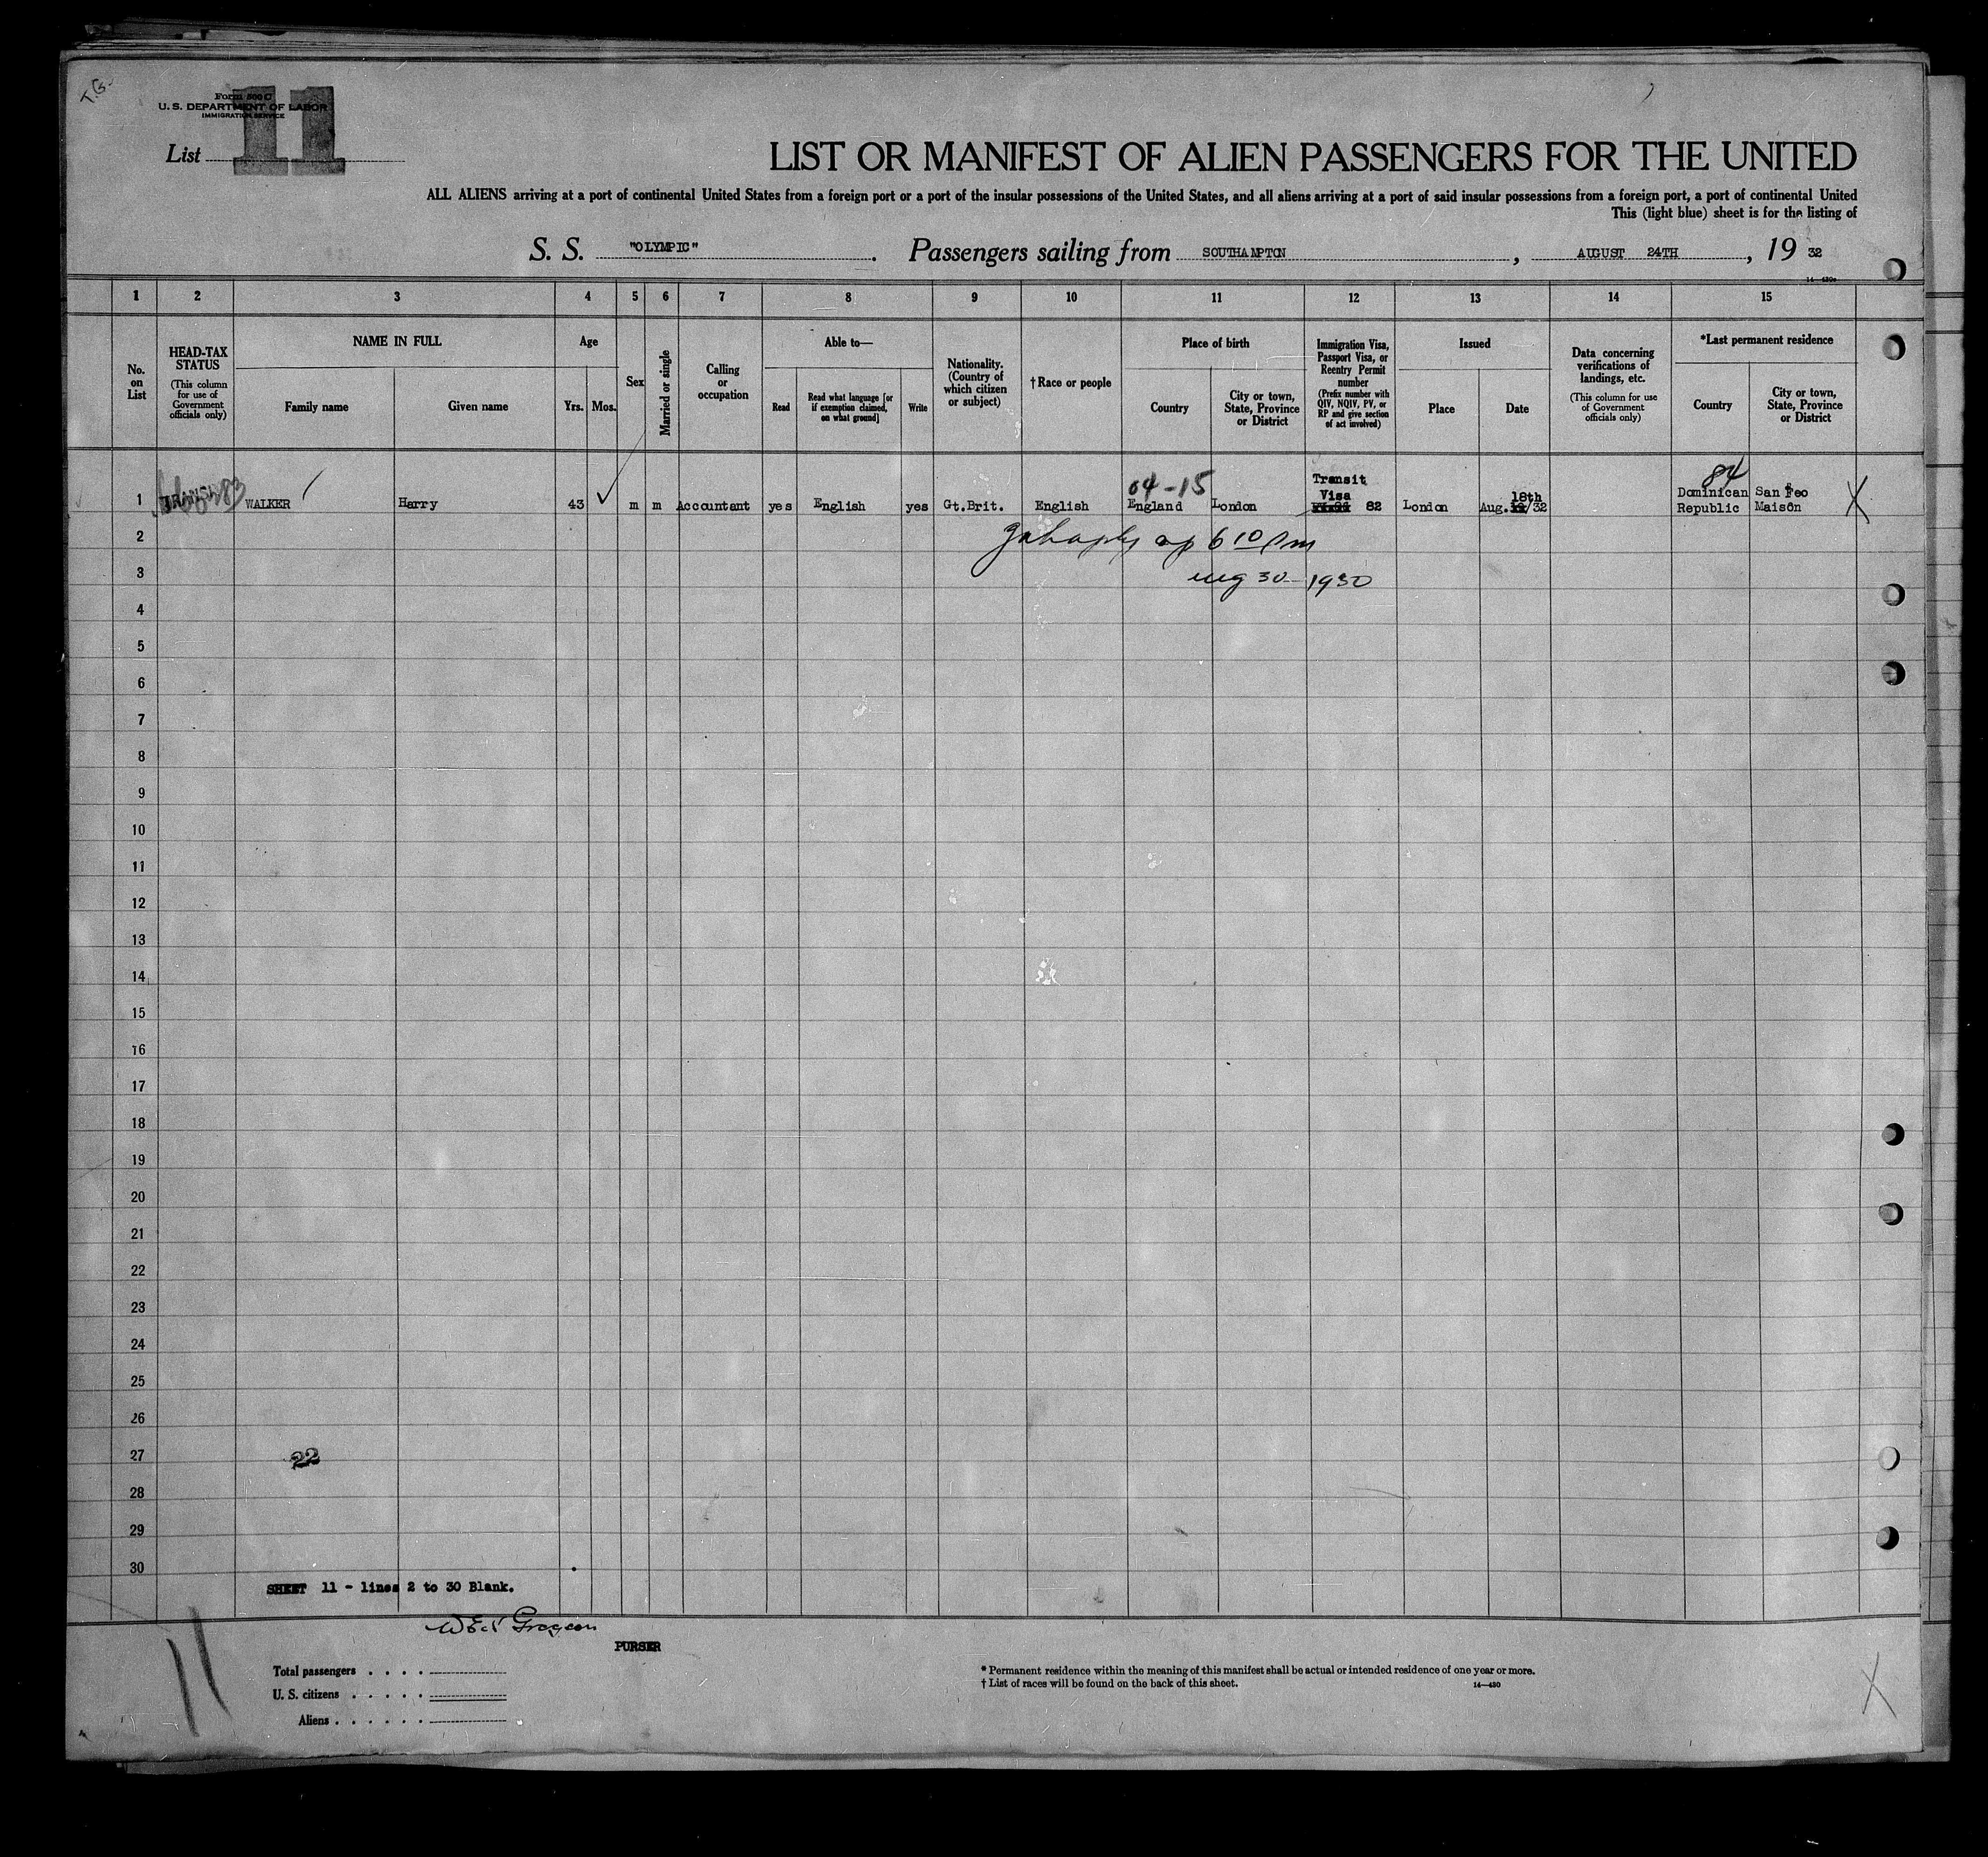 T.B.
Form 500 C
U. S. DEPARTMENT OF LABOR
IMMIGRATION SERVICE
List 11
LIST OR MANIFEST OF ALIEN PASSENGERS FOR THE UNITED
ALL ALIENS arriving at a port of continental United States from a foreign port or a port of the insular possessions of the United States, and all aliens arriving at a port of said insular possessions from a foreign port, a port of continental United
This (light blue) sheet is for the listing of
S. S. "OLYMPIC". Passengers sailing from SOUTHAMPTON, AUGUST 24TH, 19 32
1 2 3 4 5 6 7 8 9 10 11 12 13 14 15
No. on List
HEAD-TAX STATUS
(This column for use of Government officials only)
NAME IN FULL
Family name
Given name
Age
Yrs.
Mos.
Sex
Married or single
Calling or occupation
Able to—
Read
Read what language [or if exemption claimed, on what ground]
Write
Nationality. (Country of which citizen or subject)
†Race or people
Place of birth
Country
City or town, State, Province or District
Immigration Visa, Passport Visa, or Reentry Permit number
(Prefix number with QIV, NQIV, PV, or RP and give section of act involved)
Issued
Place
Date
Data concerning verifications of landings, etc.
(This column for use of Government officials only)
*Last permanent residence
Country
City or town, State, Province or District
04-15
84
1 TRANSIT WALKER Harry 43 m m Accountant yes English yes Gt.Brit. English England London Transit Visa 82 London Aug. 18th/32 Dominican Republic San Feo Maison X
2
3
aug 30 - 1930
4
5
6
7
8
9
10
11
12
13
14
15
16
17
18
19
20
21
22
23
24
25
26
27 22
28
29
30
SHEET 11 - lines 2 to 30 Blank.
PURSER
11
Total passengers
U. S. citizens
Aliens
* Permanent residence within the meaning of this manifest shall be actual or intended residence of one year or more.
† List of races will be found on the back of this sheet.
14—430
X